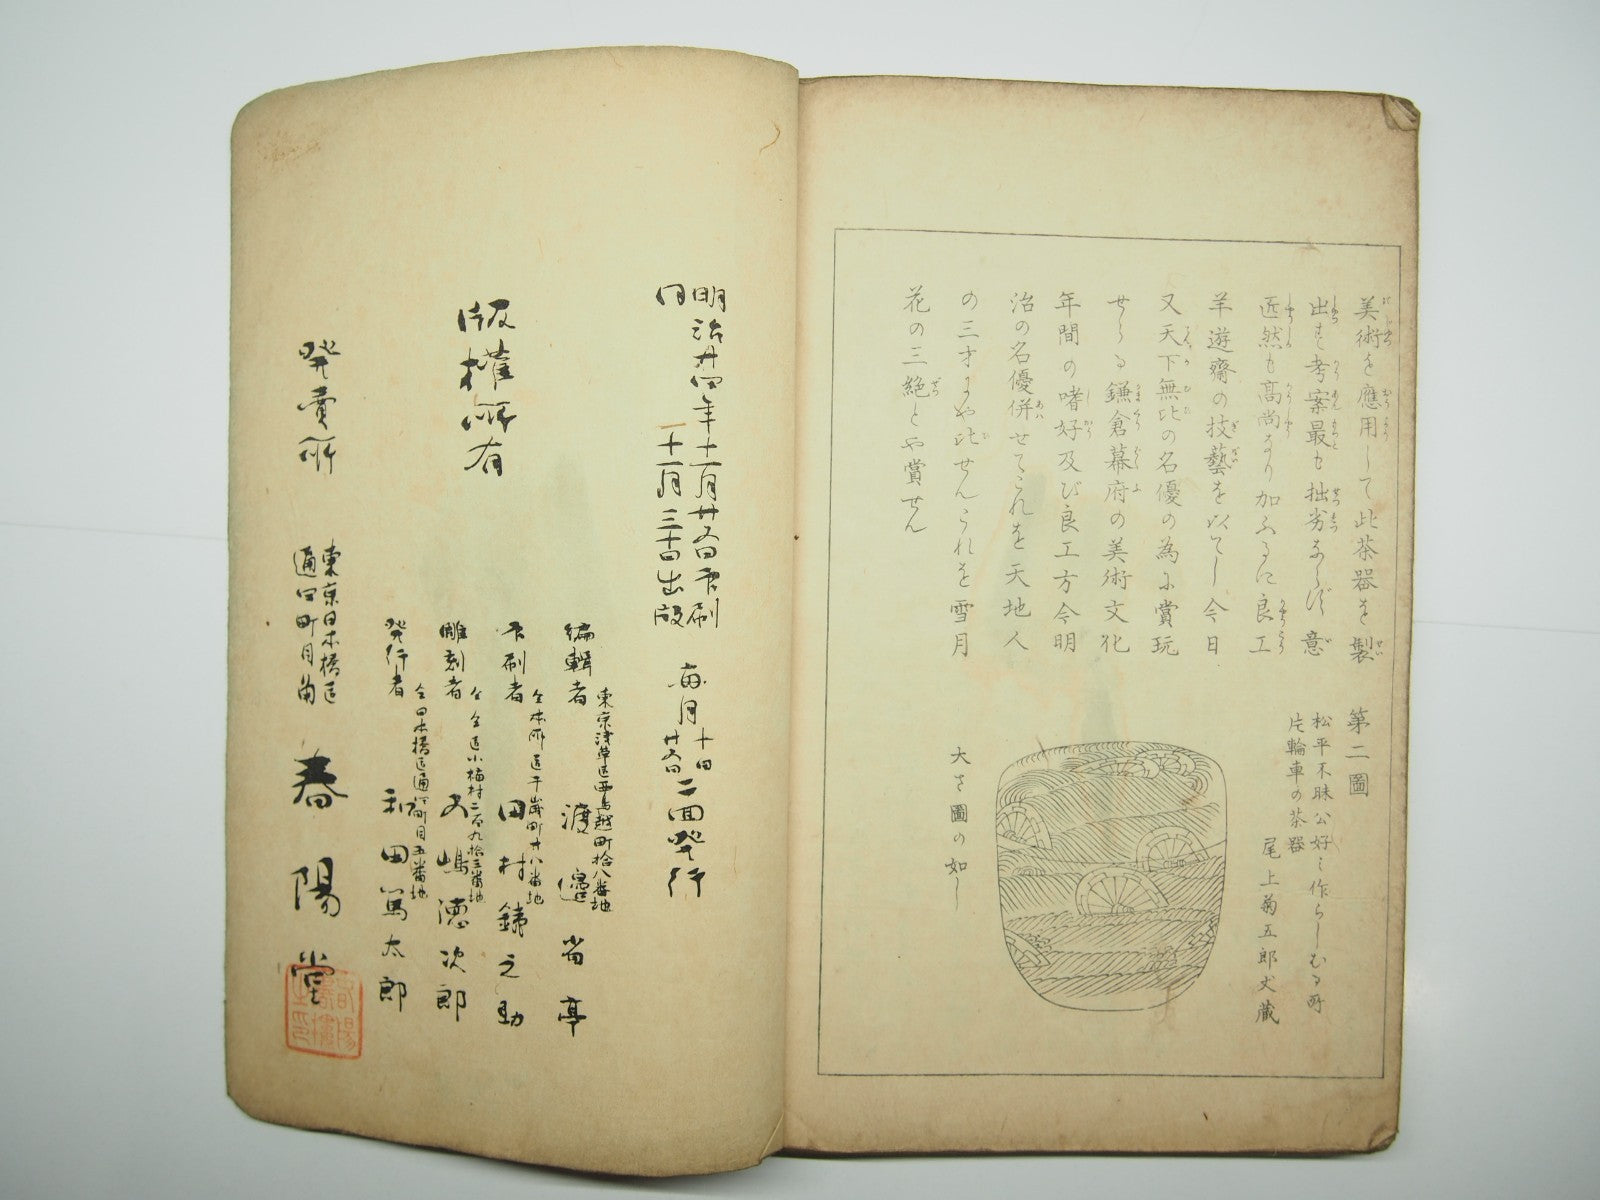 美術を應用して此茶器を製
出せる考案最も拙劣ならば意
匠然も髙尚なり加ふるに良工
羊遊齋の技藝を以てし今日
又天下無比の名優の為に賞玩
せらる鎌倉幕府の美術文化
年間の嗜好及び良工方今明
治の名優併せてこれを天地人
の三才にや比せんこれを雪月
花の三絶とや賞せん
第二圖
松平不昧公好みニ作らしむる所
片輪車の茶器
尾上菊五郎丈蔵
大さ圖の如し
明治廿四年十一月廿五日印刷
同 十一月三十日出版
毎月 十日 廿五日 二回発行
版權所有
編輯者
東京浅草区西鳥越町拾八番地
渡邊省亭
印刷者
仝本所区千歳町廿八番地
田村鉄之助
雕刻者
仝 仝区小梅村二百九拾三番地
五嶋徳次郎
発行者
仝日本橋区通四町目五番地
和田篤太郎
発賣所
東京日本橋区
通四町目角
春陽堂